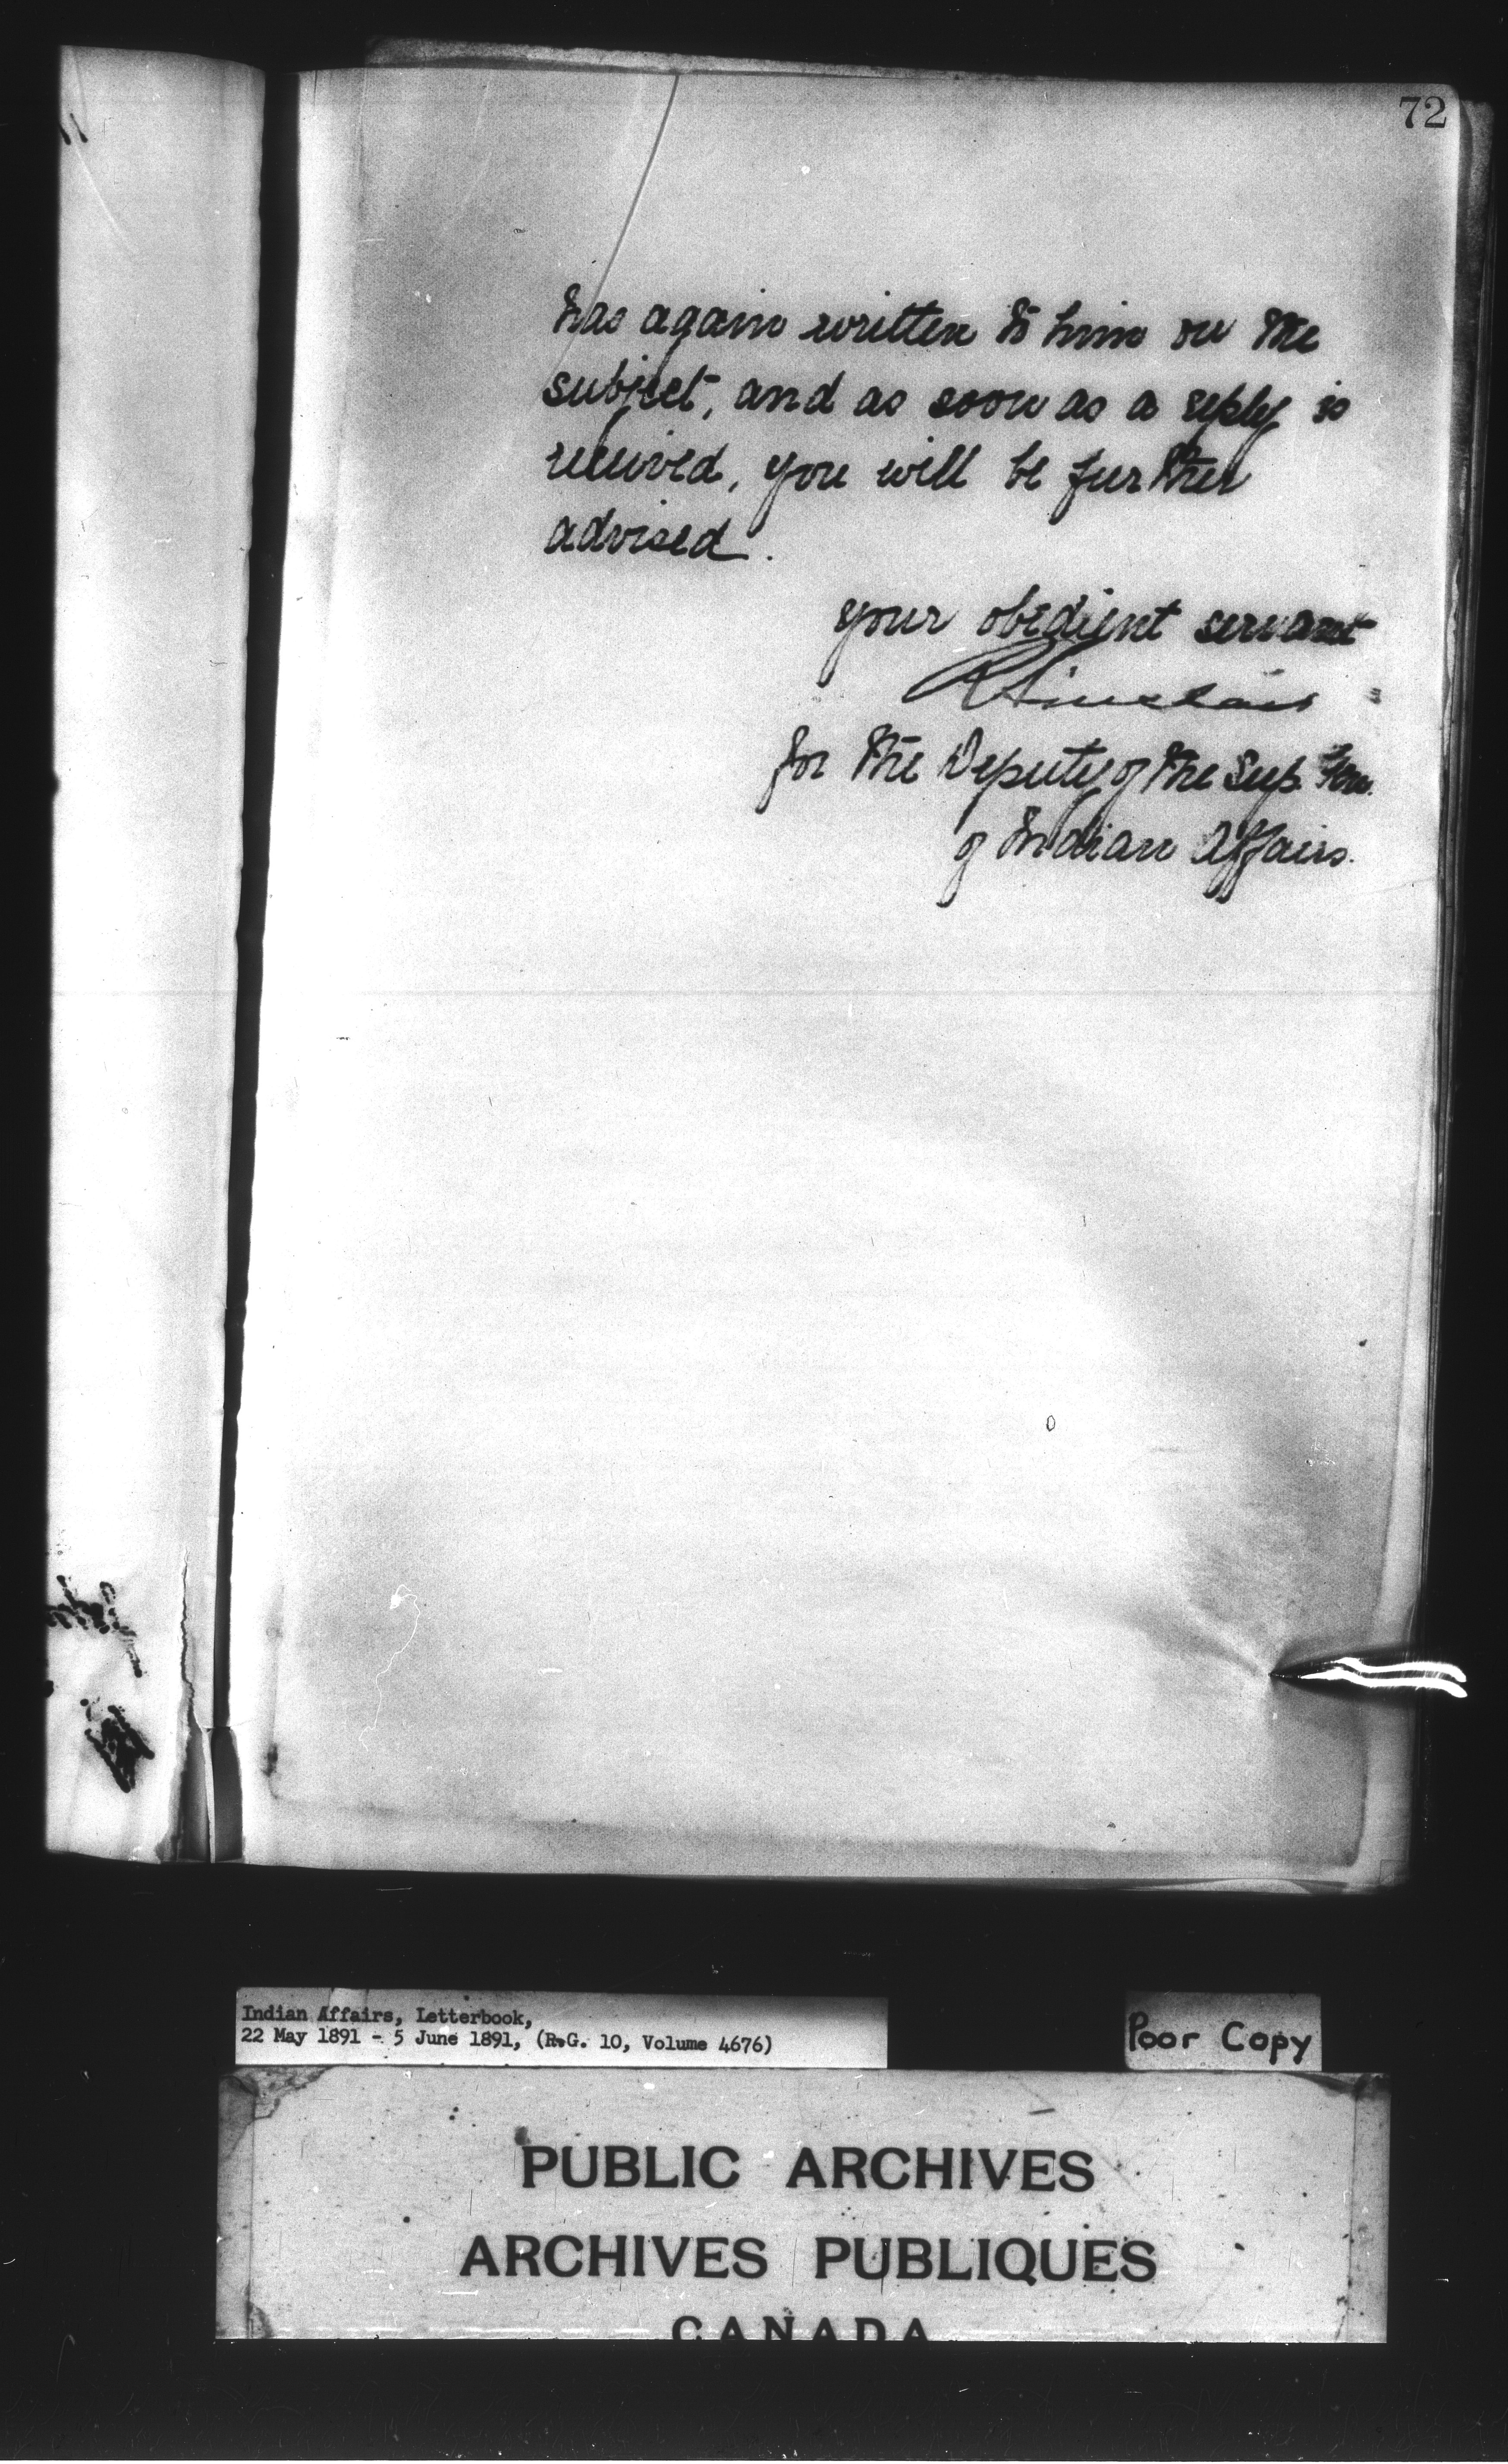 72
has again written to him on the
subject, and as soon as a reply is
received, you will be further
advised.
your obedient servant
R Sinclair
for the Deputy of the Sup. Gen.
of Indian Affairs.
Indian Affairs, Letterbook,
22 May 1891 - 5 June 1891, (R.G. 10, Volume 4676)
Poor Copy
PUBLIC ARCHIVES
ARCHIVES PUBLIQUES
CANADA